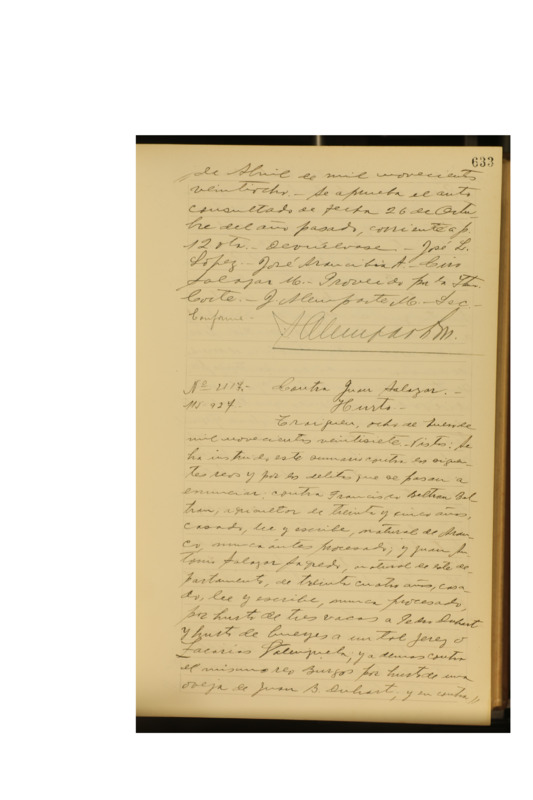 633
de Abril de mil novecientos
veintiocho. - Se aprueba el auto
consultado de fecha 26 de Octu-
bre del año pasado, corriente a f.
12 vta. - Devuélvase - José L.
López - José Arancibia A. - Ciro
Salazar M. - Proveido por la Iltma.
Corte. - J. Alemparte M. - Sec -
Conforme -
J Alemparte M.
Nº 2117.- Contra Juan Salazar. -
Hurto -
Traiguen, ocho de
mil novecientos veintisiete. - Vistos: Se
ha instruido este sumario contra los siguien-
tes reos y por los delitos que se pasan a
enunciar, contra Francisco Beltran Bel
tran, agricultor de treinta y cinco años,
casado, lee y escribe, natural de
nunca antes procesado; y Juan A
tonio Salazar Sagredo, natural de este de-
partamento, de treinta cuatro años, casa
do, lee y escribe, nunca procesado,
por hurto de tres vacas a Pedro Duhart
y hurto de bueyes a un tal Jerez o
Zacarias Valenzuela; y ademas contra
el mismo reo Burgos por hurto de una
oveja de Juan B. Duhart; y en contra